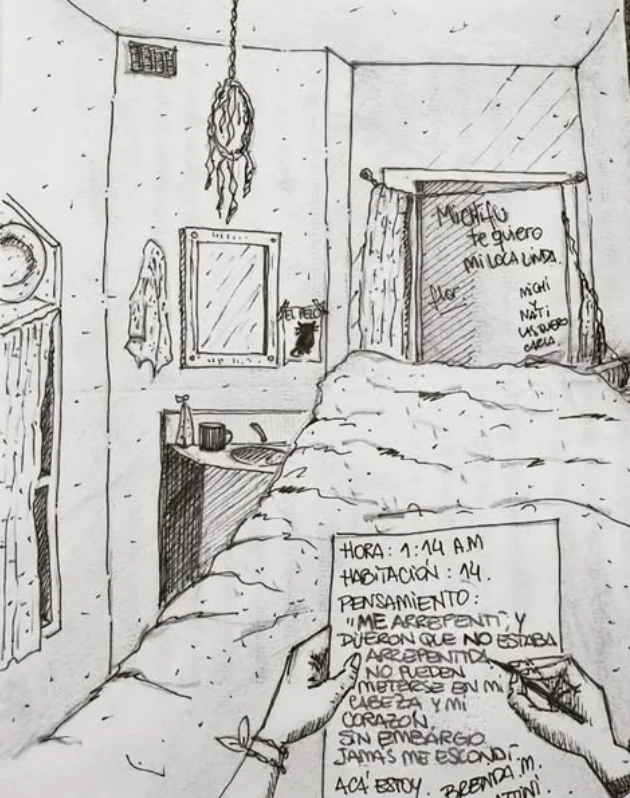 Michifu
te quiero
mi LOCA LINDA.
flor.
MICHI
Y
NATI
LAS QUIERO
CARLA.
EL PELO
HORA: 1:14 A.M
HABITACIÓN: 14.
PENSAMIENTO:
"ME ARREPENTÍ, Y
DIJERON QUE NO ESTABA
ARREPENTIDA.
NO PUEDEN
METERSE EN MI
CABEZA Y MI
CORAZÓN.
SIN EMBARGO
JAMAS ME ESCONDÍ.
ACÁ ESTOY. BRENDA.M.